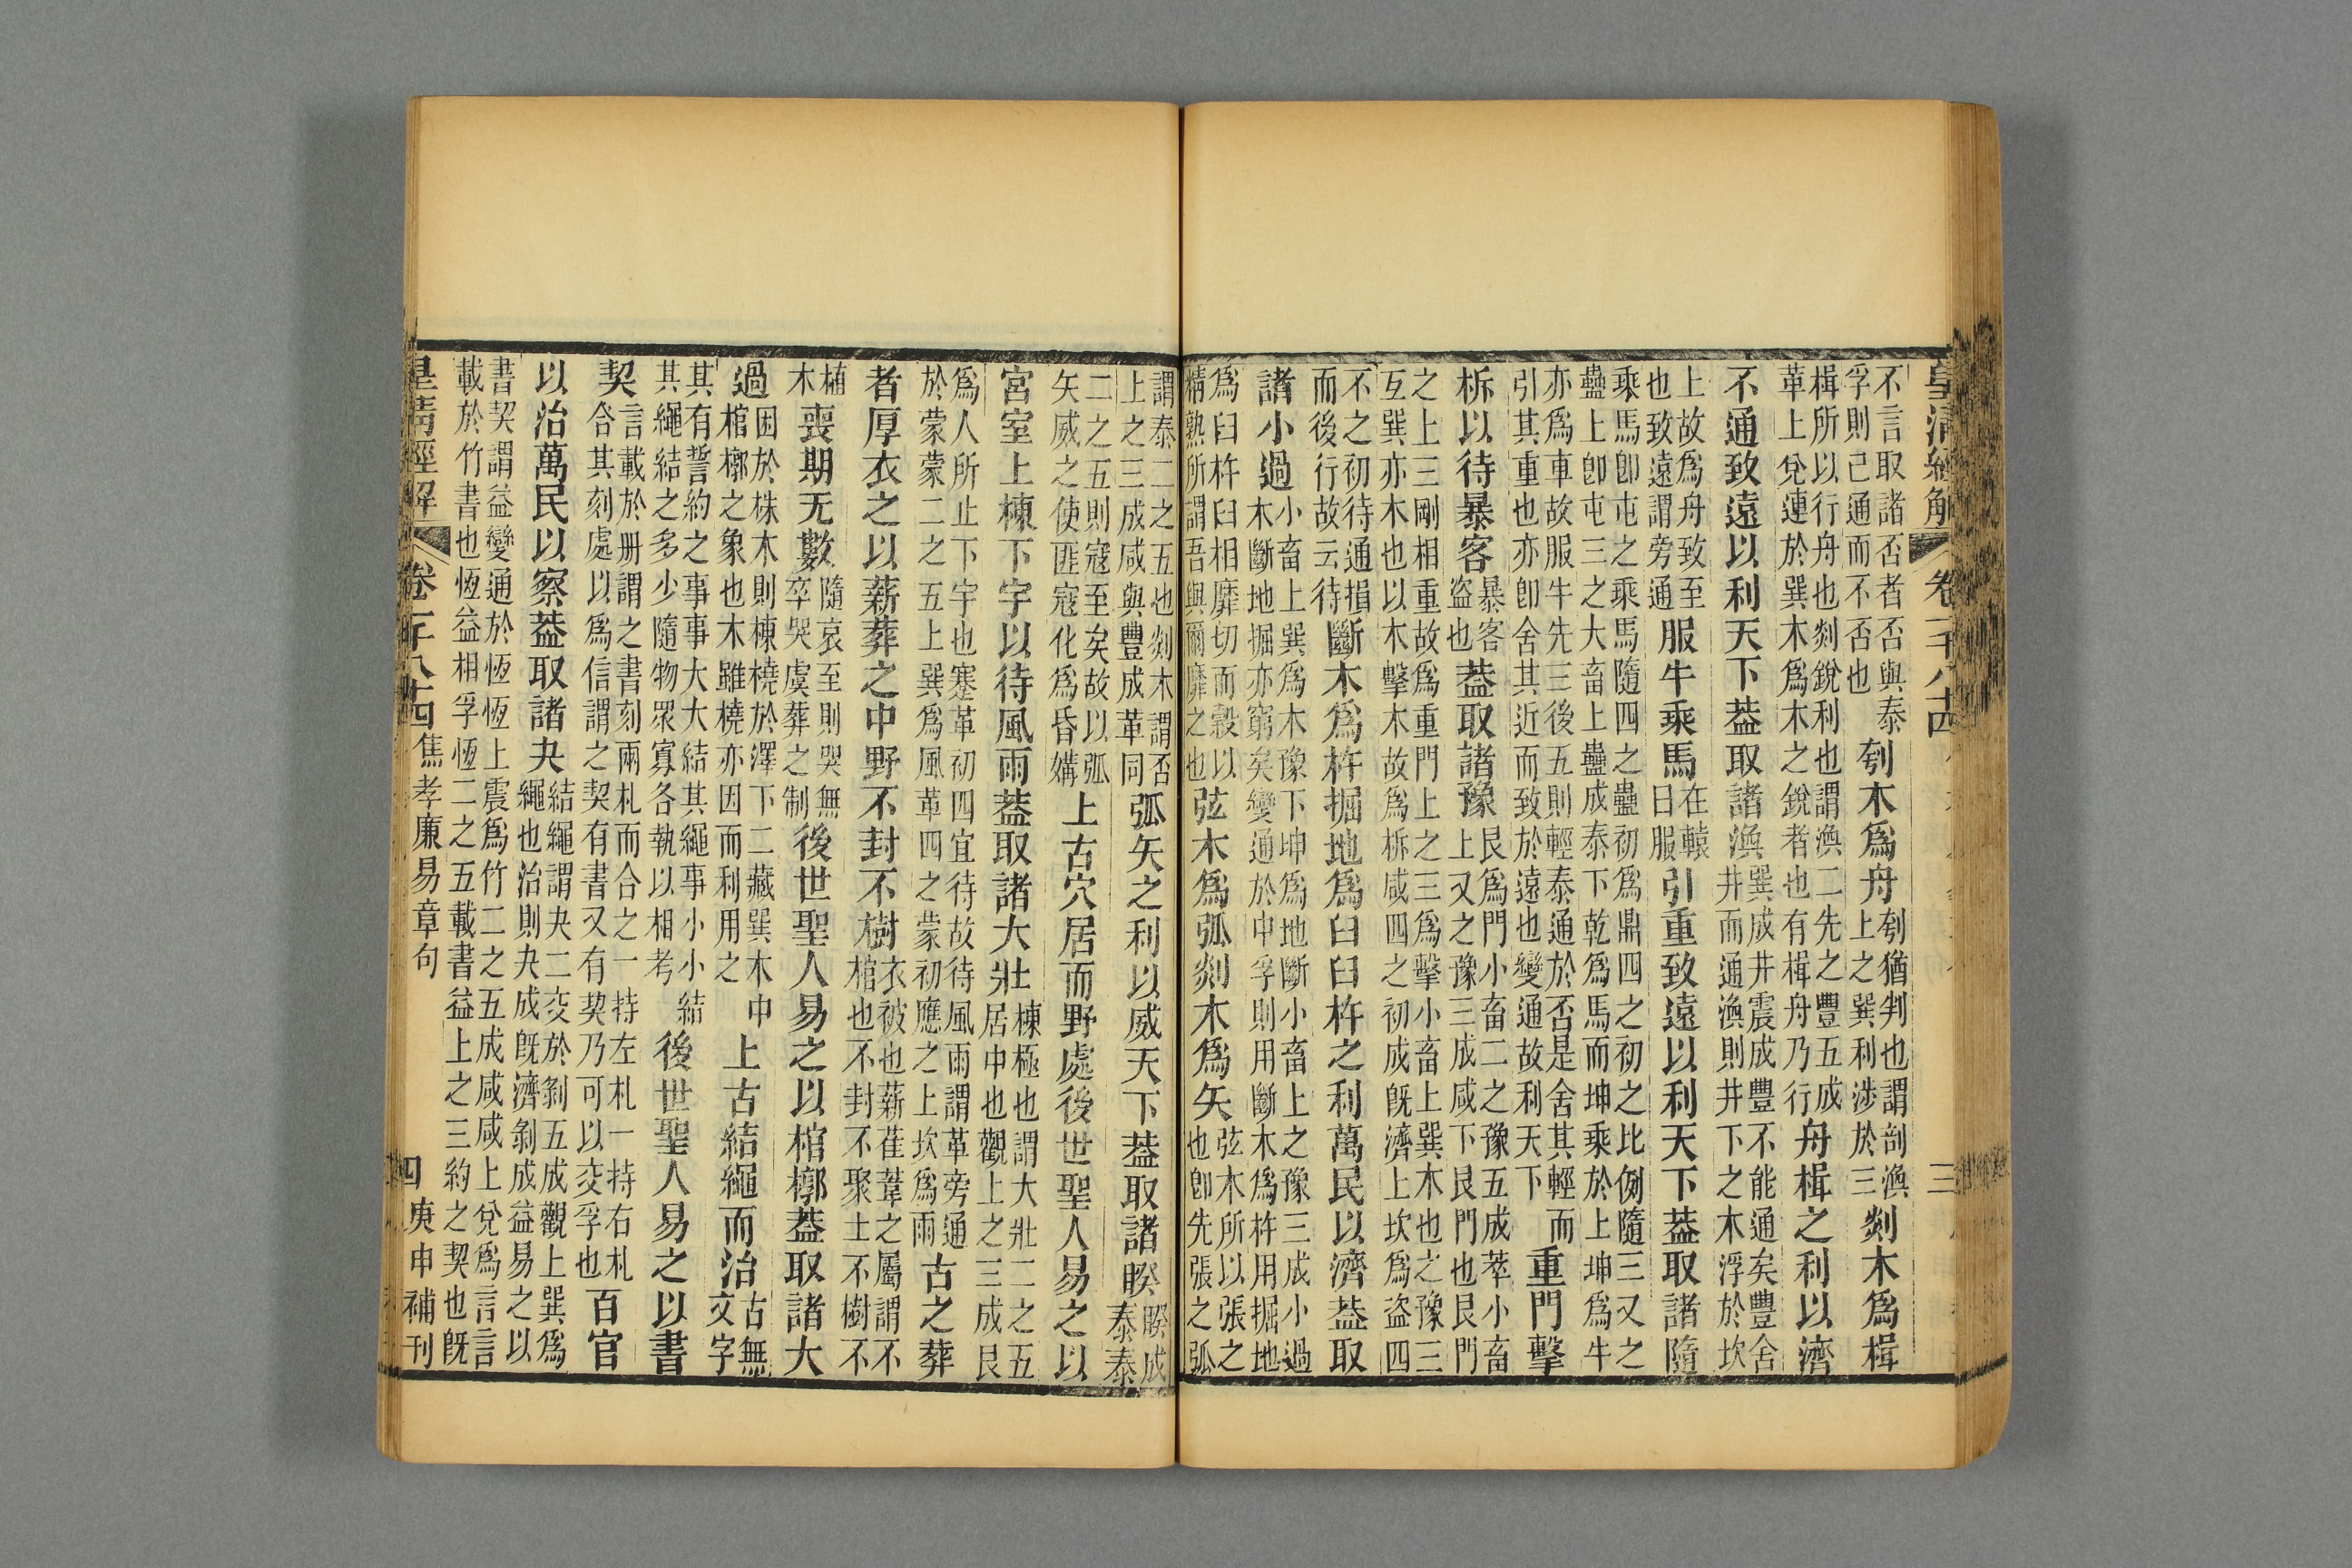 皇清經解 卷一千八十四 三
不言取諸否者否與泰
孚則己通而不否也
刳木爲舟
刳猶判也謂剖渙
上之巽利涉於三
剡木爲楫
楫所以行舟也剡銳利也謂渙二先之豐五成
革上兌連於巽木爲木之銳者也有楫舟乃行
舟楫之利以濟
不通致遠以利天下葢取諸渙
巽成井震成豐不能通矣豐舍
井而通渙則井下之木浮於坎
上故爲舟致至
也致遠謂旁通
服牛乘馬
在轅
曰服
引重致遠以利天下葢取諸隨
乘馬卽屯之乘馬隨四之蠱初爲鼎四之初之比例隨三又之
蠱上卽屯三之大畜上蠱成泰下乾爲馬而坤乘於上坤爲牛
亦爲車故服牛先三後五則輕泰通於否是舍其輕而
引其重也亦卽舍其近而致於遠也變通故利天下
重門擊
柝以待暴客
暴客
盜也
葢取諸豫
艮爲門小畜二之豫五成萃小畜
上又之豫三成咸下艮門也艮門
之上三剛相重故爲重門上之三爲擊小畜上巽木也之豫三
互巽亦木也以木擊木故爲柝咸四之初成旣濟上坎爲盜四
不之初待通揹
而後行故云待
斷木爲杵掘地爲臼臼杵之利萬民以濟葢取
諸小過
小畜上巽爲木豫下坤爲地斷小畜上之豫三成小過
木斷地掘亦窮矣變通於中孚則用斷木爲杵用掘地
爲臼杵臼相靡切而穀以
精熟所謂吾與爾靡之也
弦木爲弧剡木爲矢
弦木所以張之
也卽先張之弧
謂泰二之五也剡木謂否
上之三成咸與豐成革同
弧矢之利以威天下葢取諸睽
睽成
泰泰
二之五則寇至矣故以弧
矢威之使匪寇化爲昏媾
上古穴居而野處後世聖人易之以
宮室上棟下宇以待風雨葢取諸大壯
棟極也謂大壯二之五
居中也觀上之三成艮
爲人所止下宇也蹇革初四宜待故待風雨謂革旁通
於蒙蒙二之五上巽爲風革四之蒙初應之上坎爲雨
古之葬
者厚衣之以薪葬之中野不封不樹
衣被也薪萑葦之屬謂不
棺也不封不聚土不樹不
植
木
喪期无數
隨哀至則哭無
卒哭虞葬之制
後世聖人易之以棺槨葢取諸大
過
困於株木則棟橈於澤下二藏巽木中
棺槨之象也木雖橈亦因而利用之
上古結繩而治
古無
文字
其有誓約之事事大大結其繩事小小結
其繩結之多少隨物眾寡各執以相考
後世聖人易之以書
契
言載於册謂之書刻兩札而合之一持左札一持右札
合其刻處以爲信謂之契有書又有契乃可以交孚也
百官
以治萬民以察葢取諸夬
結繩謂夬二交於剝五成觀上巽爲
繩也治則夬成旣濟剝成益易之以
書契謂益變通於恆恆上震爲竹二之五成咸咸上兌爲言言
載於竹書也恆益相孚恆二之五載書益上之三約之契也旣
皇清經解 卷一千八十四 焦孝廉易章句 四 庚申補刊